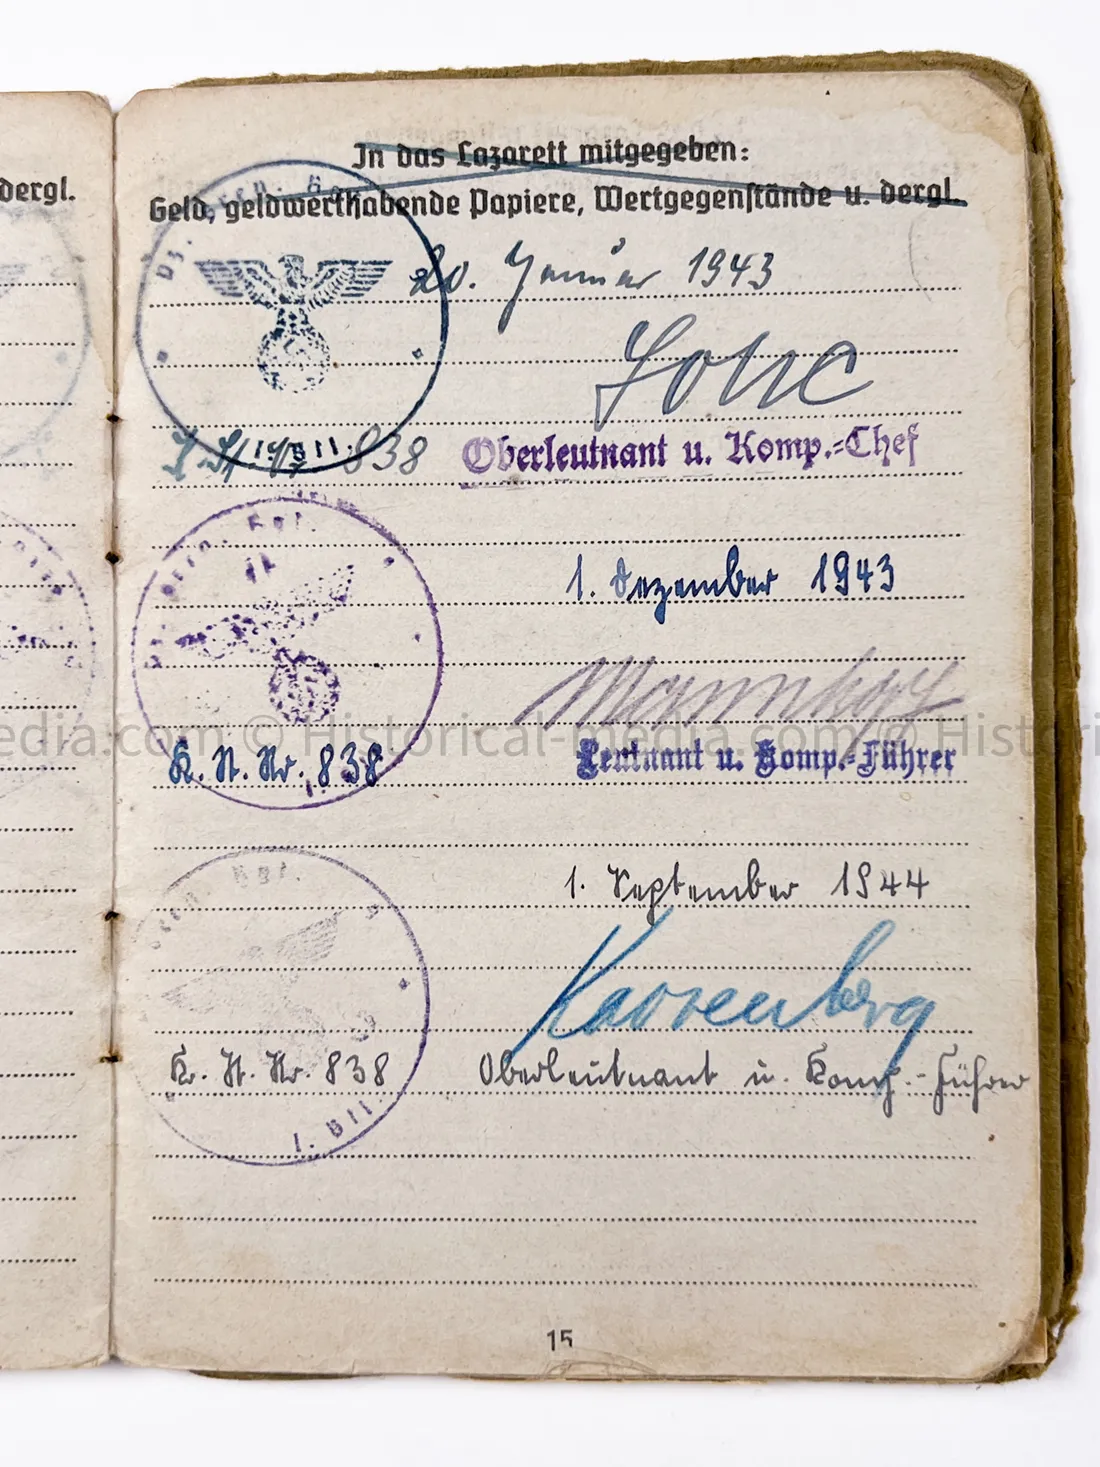 dergl.
In das Lazarett mitgegeben:
Geld, geldwerthabende Papiere, Wertgegenstände u. dergl.
20. Januar 1943
838
Oberleutnant u. Komp.-Chef
1. Dezember 1943
edia.com © Historical-media.com © Histori
K. St. Nr. 838
Leutnant u. Komp.-Führer
1. September 1944
Kr. St. Nr. 838
Oberleutnant u. Komp.-Führer
15